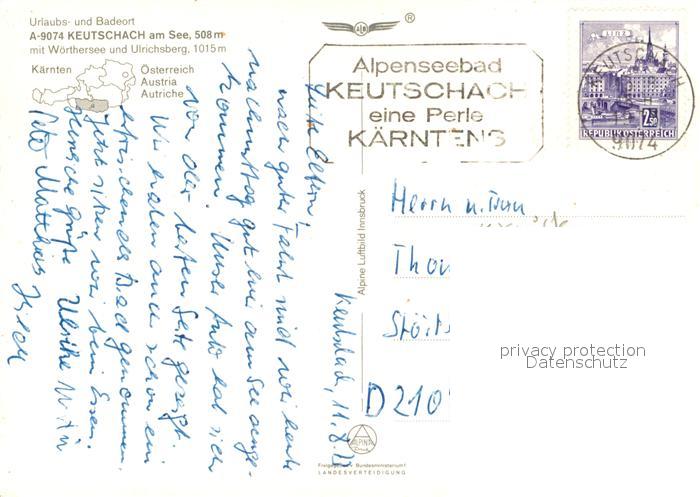 Urlaubs- und Badeort
A-9074 KEUTSCHACH am See, 508 m
mit Wörthersee und Ulrichsberg, 1015 m
Kärnten
Österreich
Austria
Autriche
®
Alpenseebad
KEUTSCHACH
eine Perle
KÄRNTENS
LINZ
KEUTSCHACH
9074
2.50
REPUBLIK ÖSTERREICH
Keutschach, 11.8.
Liebe Eltern!
nach guter Fahrt sind wir heute
nachmittag gut hier am See ange-
kommen. Unser Auto hat sich
von der besten Seite gezeigt.
Wir haben auch schon ein
erfrischendes Bad genommen.
Jetzt sitzen wir beim Essen.
Herzliche Grüße Ulrike
Matthias
Alpine Luftbild Innsbruck
Herrn u. Frau
D 210
privacy protection
Datenschutz
ALPINA
Druck
Freigegeben v. Bundesministerium f.
LANDESVERTEIDIGUNG